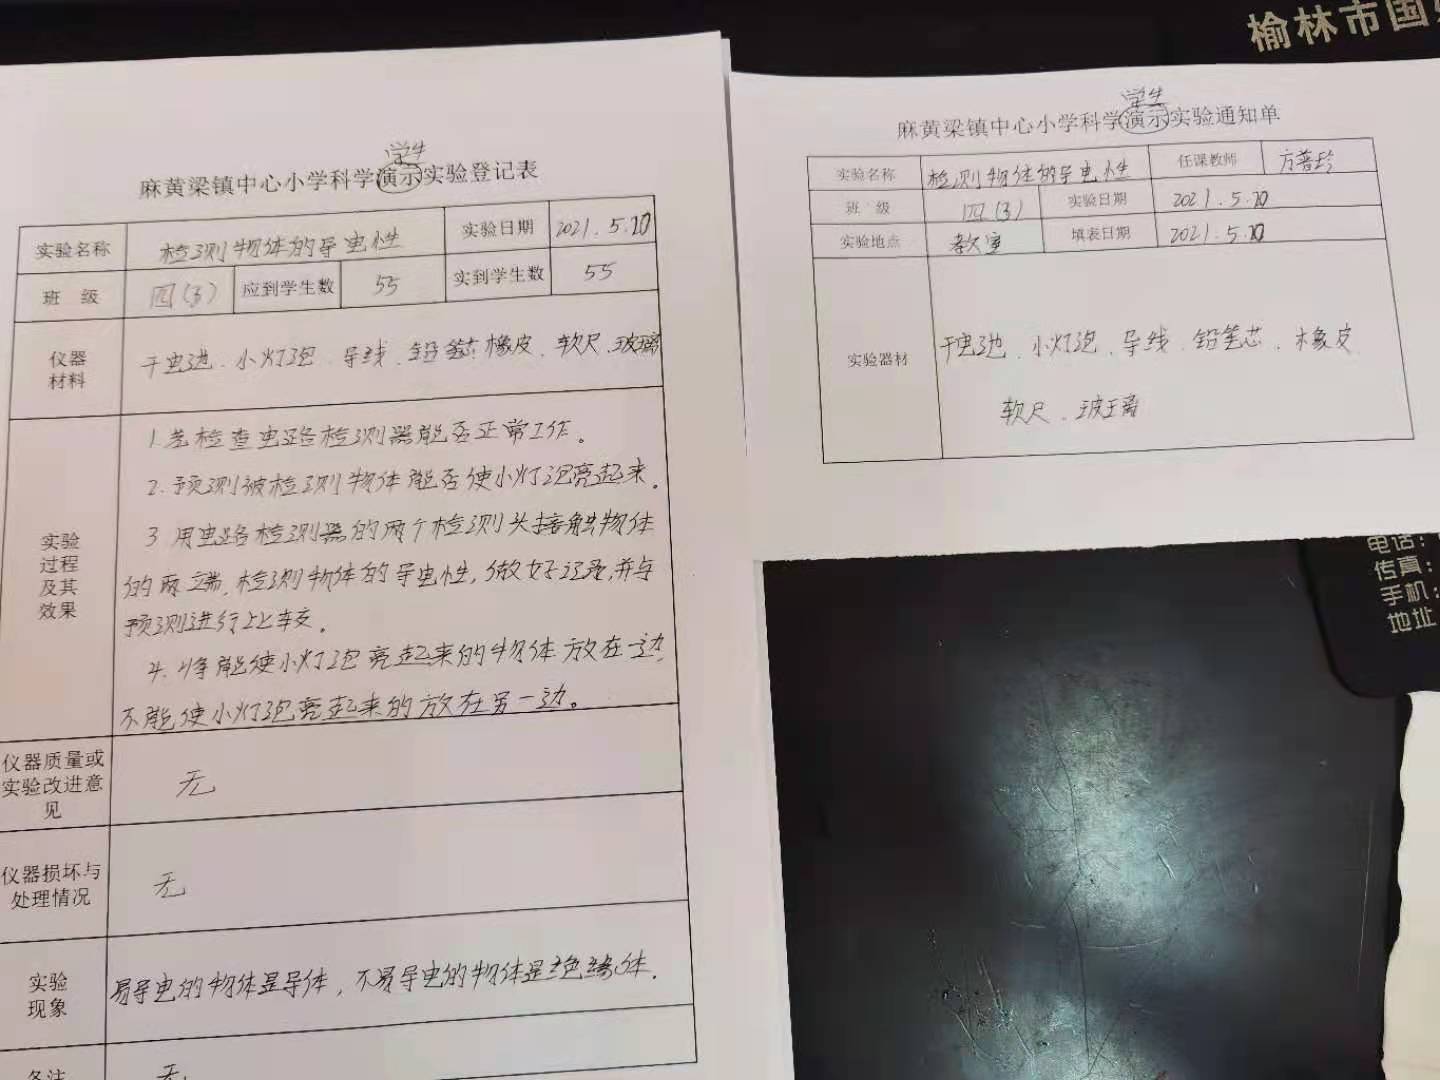 学生
麻黄梁镇中心小学科学演示实验登记表
实验名称 检测物体的导电性 实验日期 2021.5.20
班 级 四(3) 应到学生数 55 实到学生数 55
仪器
材料
干电池、小灯泡、导线、铅笔芯、橡皮、软尺、玻璃
实验
过程
及其
效果
1.先检查电路检测器能否正常工作。
2.预测被检测物体能否使小灯泡亮起来。
3 用电路检测器的两个检测头接触物体
的两端,检测物体的导电性,做好记录,并与
预测进行比较。
4.将能使小灯泡亮起来的物体放在一边,
不能使小灯泡亮起来的放在另一边。
仪器质量或
实验改进意
见
无
仪器损坏与
处理情况
无
实验
现象
易导电的物体是导体,不易导电的物体是绝缘体.
备注 无
学生
麻黄梁镇中心小学科学演示实验通知单
实验名称 检测物体的导电性 任课教师
班 级 四(3) 实验日期 2021.5.20
实验地点 教室 填表日期 2021.5.20
实验器材
干电池、小灯泡、导线、铅笔芯、橡皮
软尺、玻璃
榆林市国
电话:
传真:
手机:
地址